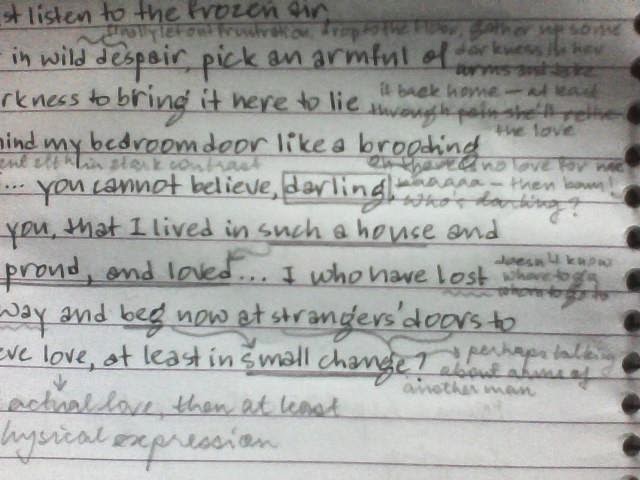 st listen to the frozen air,
finally let out frustration, drop to the floor, gather up some
in wild despair, pick an armful of
darkness in her
arms and take
rkness to bring it here to lie
it back home – at least
through pain she'll
the love
hind my bedroom door like a brooding
in stark contrast
no love for me
... you cannot believe, darling,
aaaaaa – then bam!
who's darling?
you, that I lived in such a house and
proud, and loved... I who have lost
doesn't know
where to go
whom to go to
way and beg now at strangers' doors to
eve love, at least in small change?
perhaps talking
about arms of
another man
actual love, then at least
hysical expression